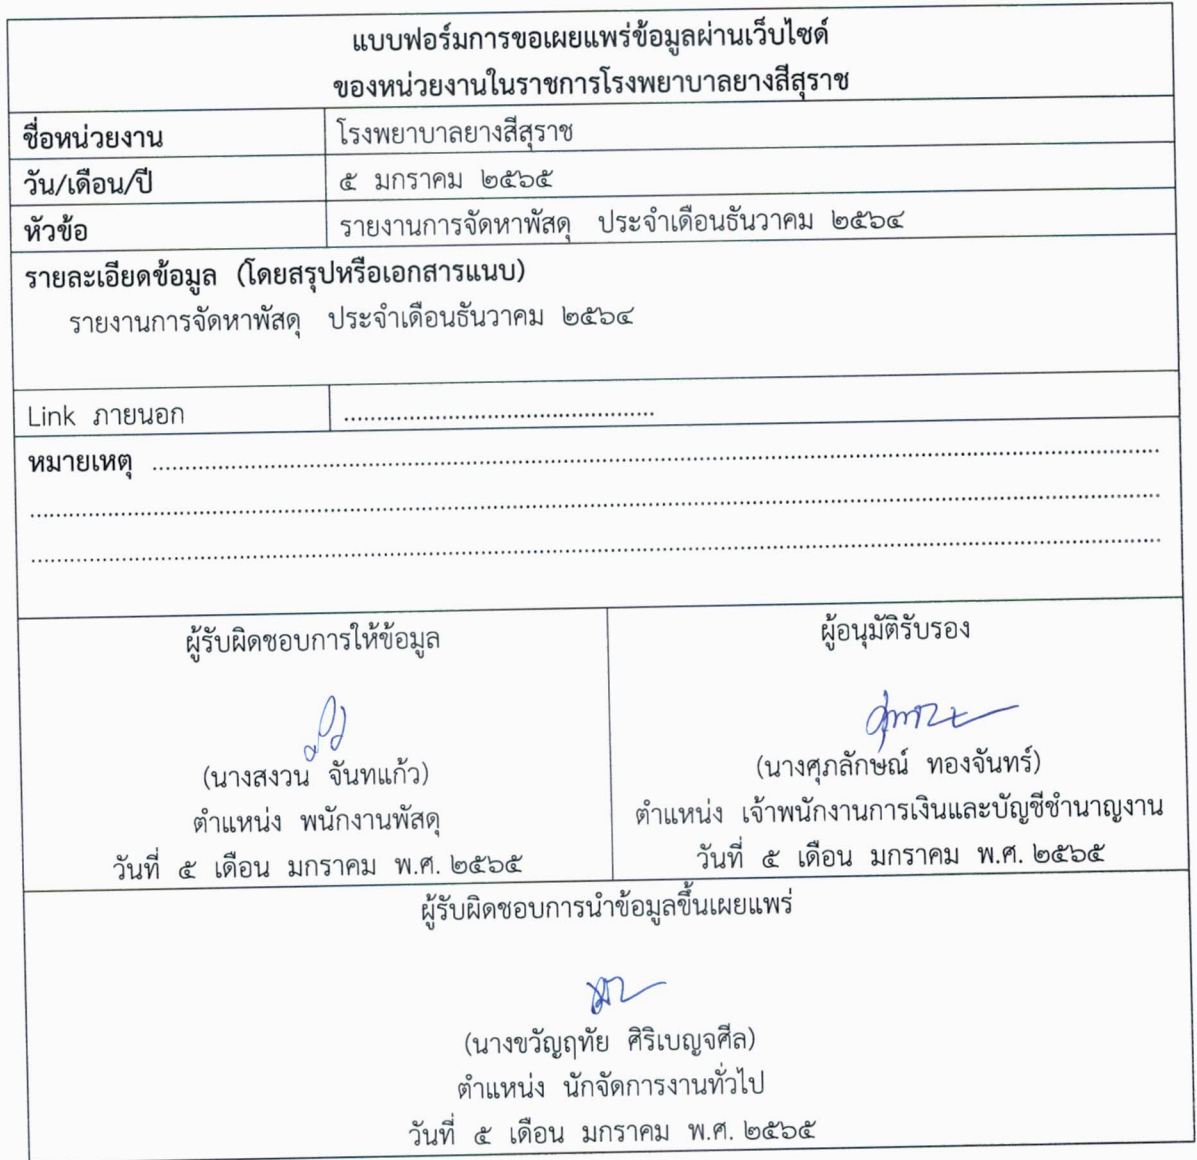 แบบฟอร์มการขอเผยแพร่ข้อมูลผ่านเว็บไซต์
ของหน่วยงานในราชการโรงพยาบาลยางสีสุราช
ชื่อหน่วยงาน โรงพยาบาลยางสีสุราช
วัน/เดือน/ปี ๕ มกราคม ๒๕๖๕
หัวข้อ รายงานการจัดหาพัสดุ ประจำเดือนธันวาคม ๒๕๖๔
รายละเอียดข้อมูล (โดยสรุปหรือเอกสารแนบ)
รายงานการจัดหาพัสดุ ประจำเดือนธันวาคม ๒๕๖๔
Link ภายนอก ...............................................
หมายเหตุ ...............................................
ผู้รับผิดชอบการให้ข้อมูล
(นางสงวน จันทแก้ว)
ตำแหน่ง พนักงานพัสดุ
วันที่ ๕ เดือน มกราคม พ.ศ. ๒๕๖๕
ผู้อนุมัติรับรอง
(นางศุภลักษณ์ ทองจันทร์)
ตำแหน่ง เจ้าพนักงานการเงินและบัญชีชำนาญงาน
วันที่ ๕ เดือน มกราคม พ.ศ. ๒๕๖๕
ผู้รับผิดชอบการนำข้อมูลขึ้นเผยแพร่
(นางขวัญฤทัย ศิริเบญจศีล)
ตำแหน่ง นักจัดการงานทั่วไป
วันที่ ๕ เดือน มกราคม พ.ศ. ๒๕๖๕